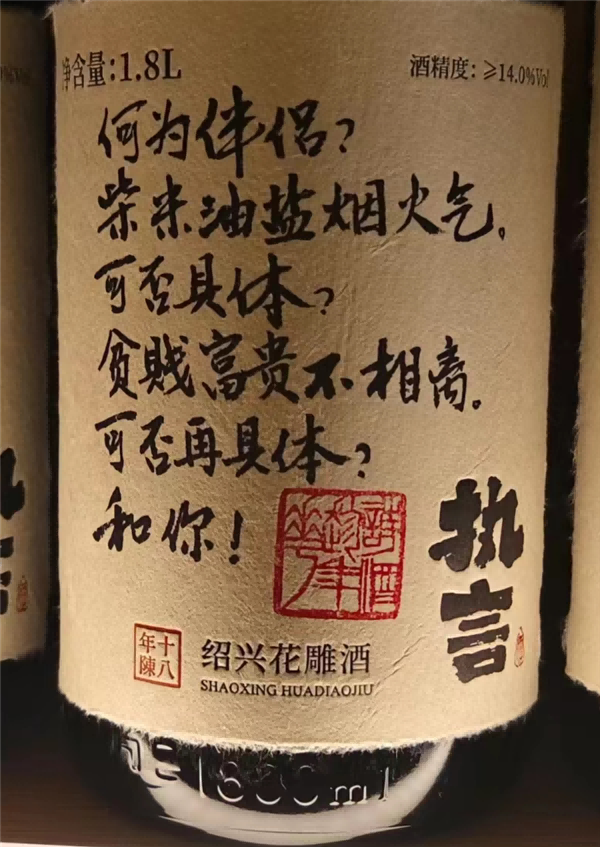 净含量:1.8L
酒精度: ≥14.0%Vol
何为伴侣?
柴米油盐烟火气。
可否具体?
贫賎富贵不相离。
可否再具体?
和你!
执言
十八
年陳
绍兴花雕酒
SHAOXING HUADIAOJIU
1800ml